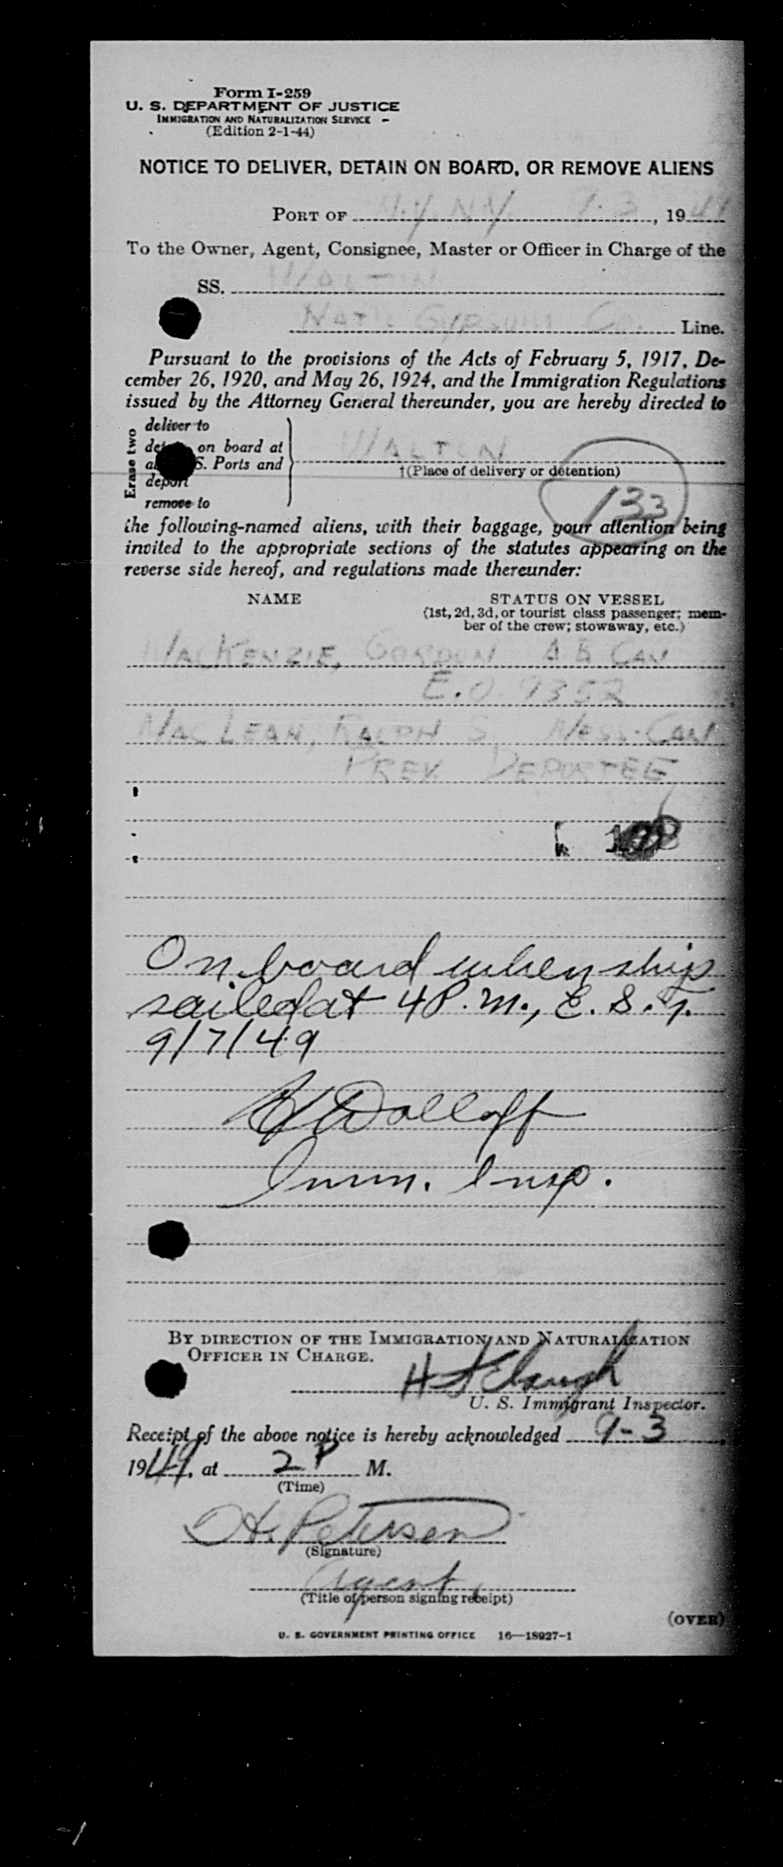 Form I-259
U. S. DEPARTMENT OF JUSTICE
IMMIGRATION AND NATURALIZATION SERVICE
(Edition 2-1-44)
NOTICE TO DELIVER, DETAIN ON BOARD, OR REMOVE ALIENS
PORT OF N.Y. N.Y. 9-3, 1949
To the Owner, Agent, Consignee, Master or Officer in Charge of the
SS. WALTON
NAT'L GYPSUM Co. Line.
Pursuant to the provisions of the Acts of February 5, 1917, De-
cember 26, 1920, and May 26, 1924, and the Immigration Regulations
issued by the Attorney General thereunder, you are hereby directed to
Erase two
deliver to
on board at
S. Ports and
deport
remove to
WALTON
†(Place of delivery or detention)
133
the following-named aliens, with their baggage, your attention being
invited to the appropriate sections of the statutes appearing on the
reverse side hereof, and regulations made thereunder:
NAME STATUS ON VESSEL
(1st, 2d, 3d, or tourist class passenger; mem-
ber of the crew; stowaway, etc.)
MACKENZIE, GORDON A B CAN
E.O. 9352
MACLEAN, RALPH S MESS-CAN
PREV. DEPORTEE
On board when ship
sailed at 4 P.M., E.S.T.
9/7/49
Dolloff
Imm. Insp.
BY DIRECTION OF THE IMMIGRATION AND NATURALIZATION
OFFICER IN CHARGE.
U. S. Immigrant Inspector.
Receipt of the above notice is hereby acknowledged 9-3,
1949, at 2 P M.
(Time)
H. Petersen
(Signature)
Agent
(Title of person signing receipt)
(OVER)
U. S. GOVERNMENT PRINTING OFFICE 16—18927-1